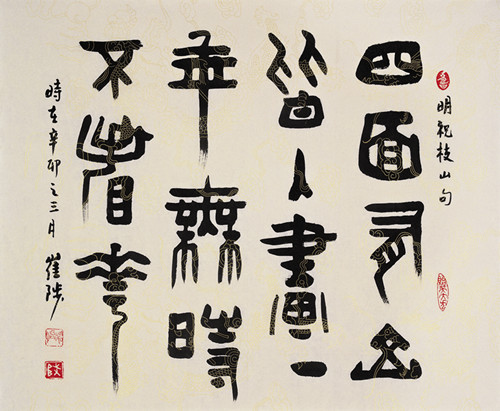 明祝枝山句
四面有山
皆入畫一
年無時
不看花
時在辛卯之三月
崔陟